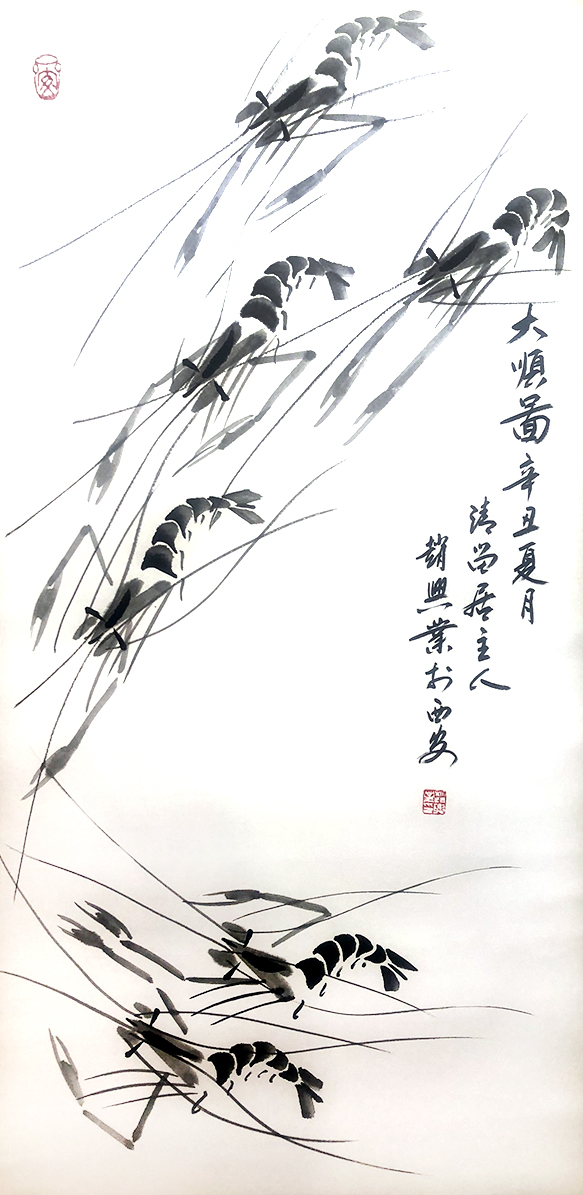 大順圖辛丑夏月
清留居主人
趙興業於西安